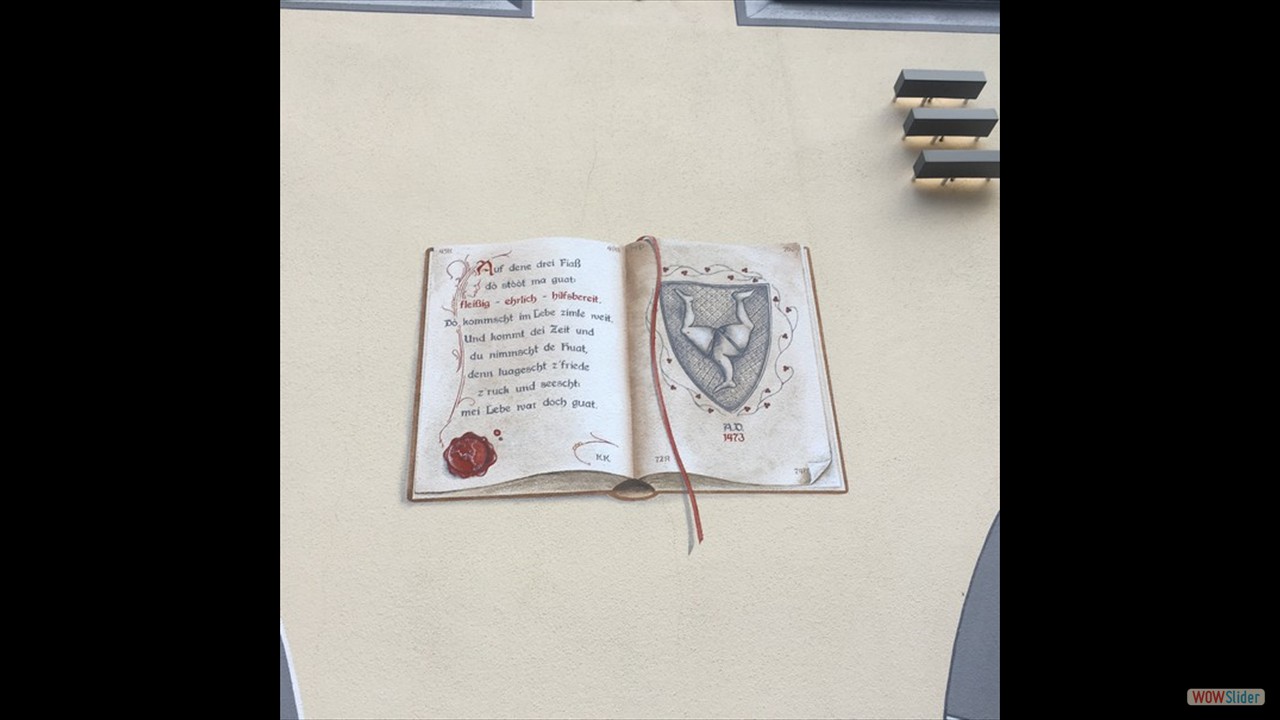 Auf dene drei Fiaß
do stòòt ma guat:
fleißig - ehrlich - hilfsbereit.
Do kommscht im Lebe zimle weit.
Und kommt dei Zeit und
du nimmscht de Huat,
denn luagescht z'friede
z'ruck und seescht:
mei Lebe war doch guat.
KK
A.D.
1473
WOWSlider